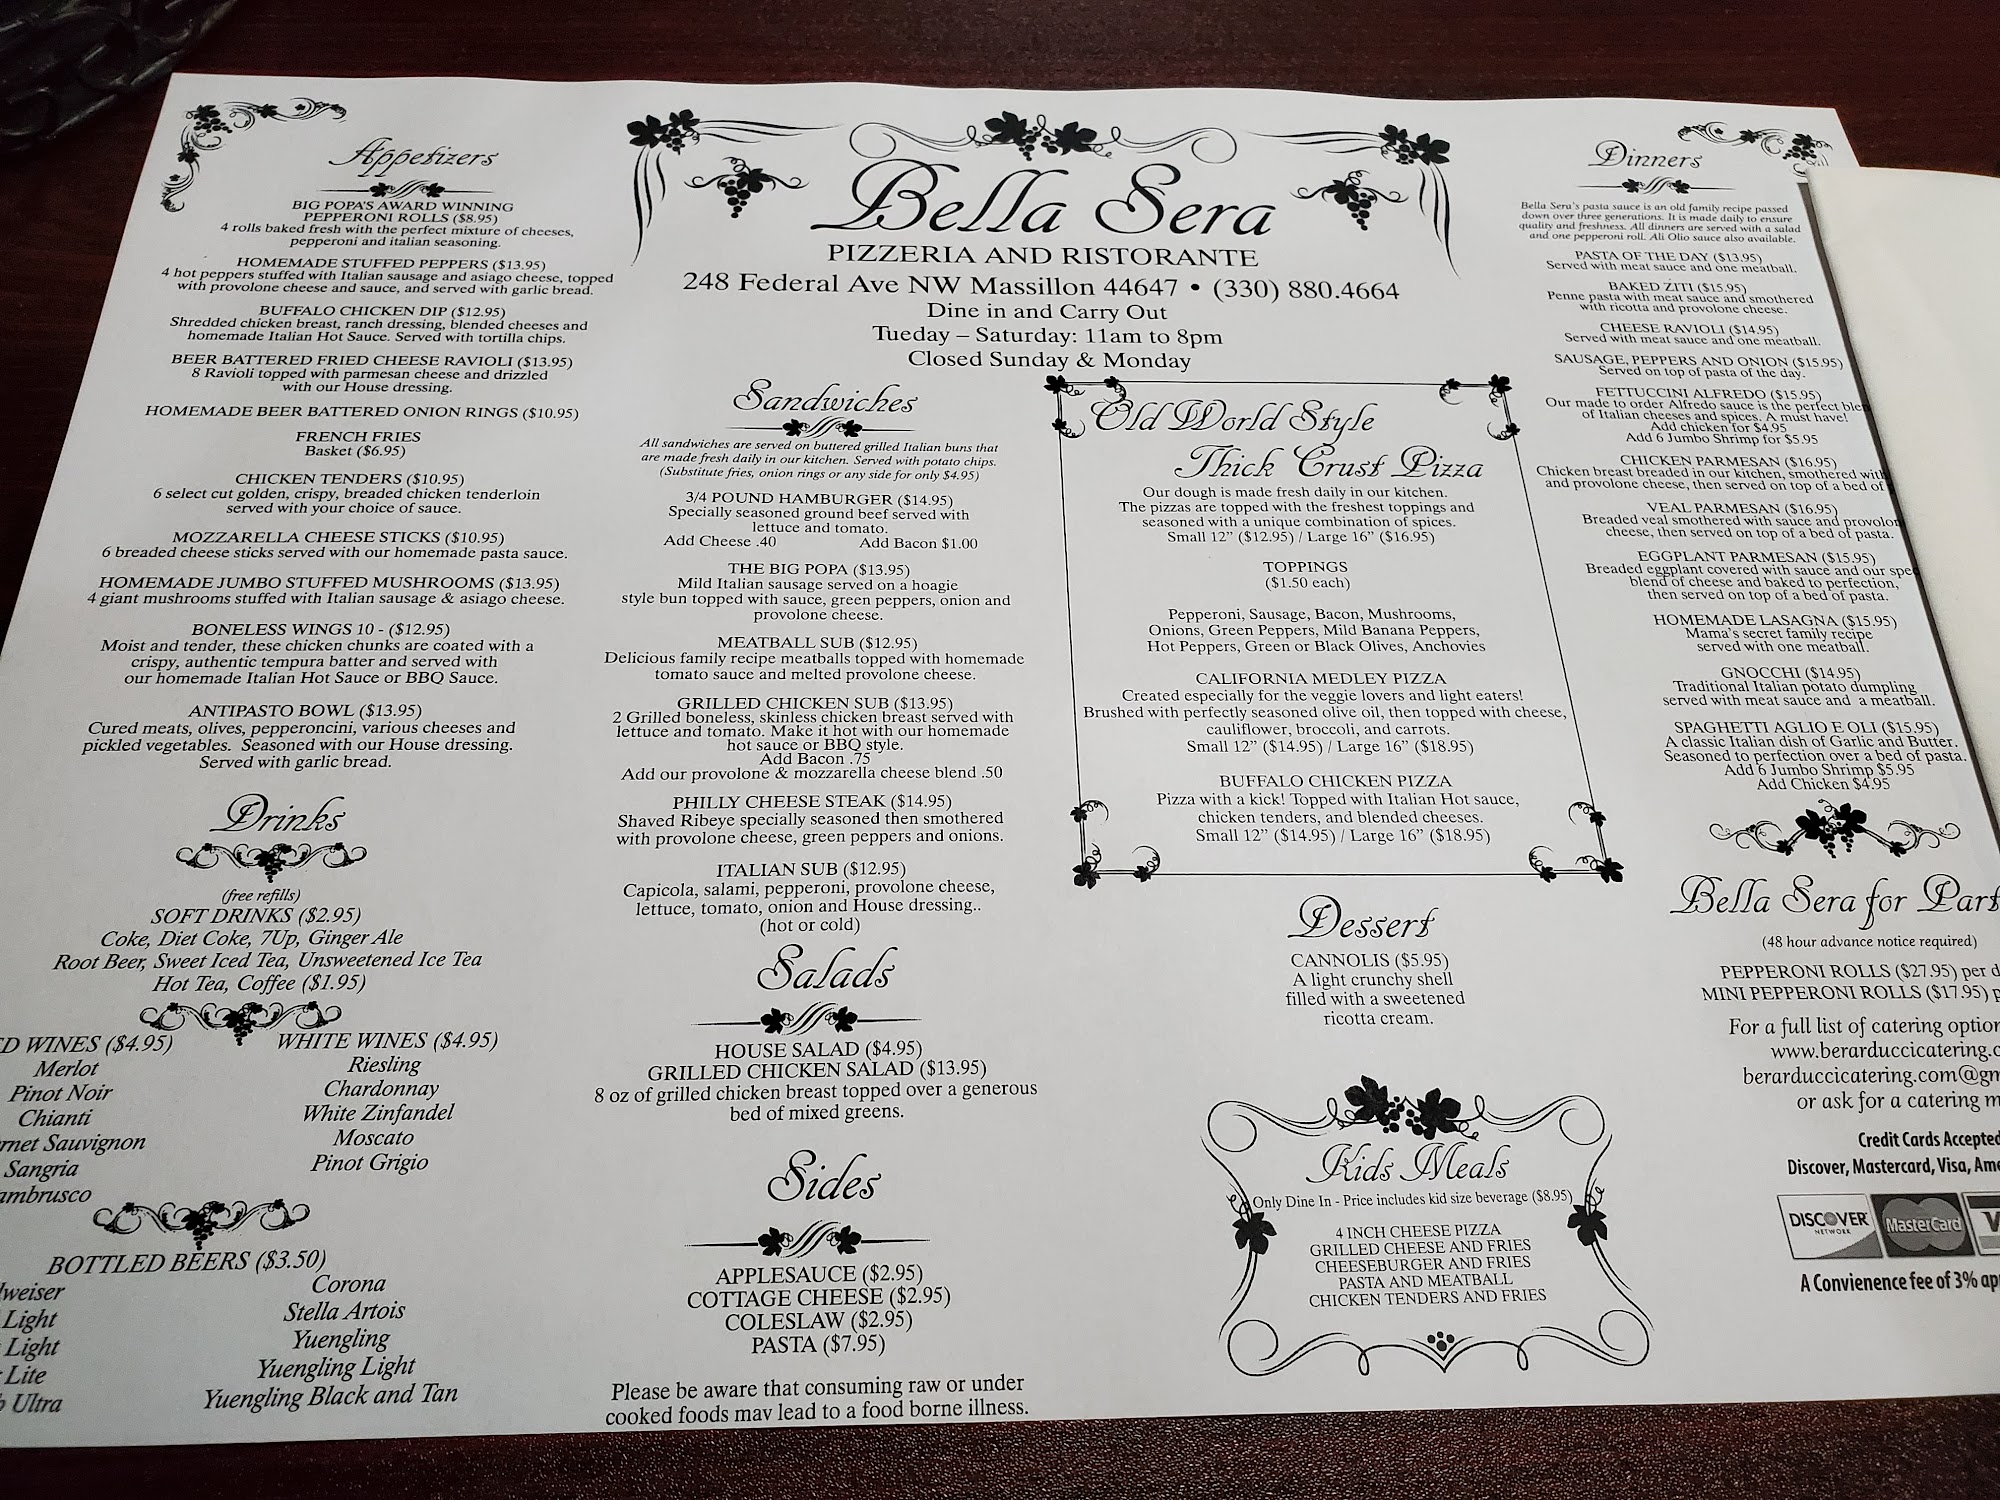 Appetizers
BIG POPA'S AWARD WINNING
PEPPERONI ROLLS ($8.95)
4 rolls baked fresh with the perfect mixture of cheeses,
pepperoni and italian seasoning.
HOMEMADE STUFFED PEPPERS ($13.95)
4 hot peppers stuffed with Italian sausage and asiago cheese, topped
with provolone cheese and sauce, and served with garlic bread.
BUFFALO CHICKEN DIP ($12.95)
Shredded chicken breast, ranch dressing, blended cheeses and
homemade Italian Hot Sauce. Served with tortilla chips.
BEER BATTERED FRIED CHEESE RAVIOLI ($13.95)
8 Ravioli topped with parmesan cheese and drizzled
with our House dressing.
HOMEMADE BEER BATTERED ONION RINGS ($10.95)
FRENCH FRIES
Basket ($6.95)
CHICKEN TENDERS ($10.95)
6 select cut golden, crispy, breaded chicken tenderloin
served with your choice of sauce.
MOZZARELLA CHEESE STICKS ($10.95)
6 breaded cheese sticks served with our homemade pasta sauce.
HOMEMADE JUMBO STUFFED MUSHROOMS ($13.95)
4 giant mushrooms stuffed with Italian sausage & asiago cheese.
BONELESS WINGS 10 - ($12.95)
Moist and tender, these chicken chunks are coated with a
crispy, authentic tempura batter and served with
our homemade Italian Hot Sauce or BBQ Sauce.
ANTIPASTO BOWL ($13.95)
Cured meats, olives, pepperoncini, various cheeses and
pickled vegetables. Seasoned with our House dressing.
Served with garlic bread.
Drinks
(free refills)
SOFT DRINKS ($2.95)
Coke, Diet Coke, 7Up, Ginger Ale
Root Beer, Sweet Iced Tea, Unsweetened Ice Tea
Hot Tea, Coffee ($1.95)
ED WINES ($4.95)
Merlot
Pinot Noir
Chianti
rnet Sauvignon
Sangria
ambrusco
WHITE WINES ($4.95)
Riesling
Chardonnay
White Zinfandel
Moscato
Pinot Grigio
BOTTLED BEERS ($3.50)
weiser
Light
Light
Lite
Ultra
Corona
Stella Artois
Yuengling
Yuengling Light
Yuengling Black and Tan
Bella Sera
PIZZERIA AND RISTORANTE
248 Federal Ave NW Massillon 44647 • (330) 880.4664
Dine in and Carry Out
Tueday – Saturday: 11am to 8pm
Closed Sunday & Monday
Sandwiches
All sandwiches are served on buttered grilled Italian buns that
are made fresh daily in our kitchen. Served with potato chips.
(Substitute fries, onion rings or any side for only $4.95)
3/4 POUND HAMBURGER ($14.95)
Specially seasoned ground beef served with
lettuce and tomato.
Add Cheese .40 Add Bacon $1.00
THE BIG POPA ($13.95)
Mild Italian sausage served on a hoagie
style bun topped with sauce, green peppers, onion and
provolone cheese.
MEATBALL SUB ($12.95)
Delicious family recipe meatballs topped with homemade
tomato sauce and melted provolone cheese.
GRILLED CHICKEN SUB ($13.95)
2 Grilled boneless, skinless chicken breast served with
lettuce and tomato. Make it hot with our homemade
hot sauce or BBQ style.
Add Bacon .75
Add our provolone & mozzarella cheese blend .50
PHILLY CHEESE STEAK ($14.95)
Shaved Ribeye specially seasoned then smothered
with provolone cheese, green peppers and onions.
ITALIAN SUB ($12.95)
Capicola, salami, pepperoni, provolone cheese,
lettuce, tomato, onion and House dressing..
(hot or cold)
Salads
HOUSE SALAD ($4.95)
GRILLED CHICKEN SALAD ($13.95)
8 oz of grilled chicken breast topped over a generous
bed of mixed greens.
Sides
APPLESAUCE ($2.95)
COTTAGE CHEESE ($2.95)
COLESLAW ($2.95)
PASTA ($7.95)
Please be aware that consuming raw or under
cooked foods may lead to a food borne illness.
Old World Style
Thick Crust Pizza
Our dough is made fresh daily in our kitchen.
The pizzas are topped with the freshest toppings and
seasoned with a unique combination of spices.
Small 12" ($12.95) / Large 16" ($16.95)
TOPPINGS
($1.50 each)
Pepperoni, Sausage, Bacon, Mushrooms,
Onions, Green Peppers, Mild Banana Peppers,
Hot Peppers, Green or Black Olives, Anchovies
CALIFORNIA MEDLEY PIZZA
Created especially for the veggie lovers and light eaters!
Brushed with perfectly seasoned olive oil, then topped with cheese,
cauliflower, broccoli, and carrots.
Small 12" ($14.95) / Large 16" ($18.95)
BUFFALO CHICKEN PIZZA
Pizza with a kick! Topped with Italian Hot sauce,
chicken tenders, and blended cheeses.
Small 12" ($14.95) / Large 16" ($18.95)
Dessert
CANNOLIS ($5.95)
A light crunchy shell
filled with a sweetened
ricotta cream.
Kids Meals
Only Dine In - Price includes kid size beverage ($8.95)
4 INCH CHEESE PIZZA
GRILLED CHEESE AND FRIES
CHEESEBURGER AND FRIES
PASTA AND MEATBALL
CHICKEN TENDERS AND FRIES
Dinners
Bella Sera's pasta sauce is an old family recipe passed
down over three generations. It is made daily to ensure
quality and freshness. All dinners are served with a salad
and one pepperoni roll. Ali Olio sauce also available.
PASTA OF THE DAY ($13.95)
Served with meat sauce and one meatball.
BAKED ZITI ($15.95)
Penne pasta with meat sauce and smothered
with ricotta and provolone cheese.
CHEESE RAVIOLI ($14.95)
Served with meat sauce and one meatball.
SAUSAGE, PEPPERS AND ONION ($15.95)
Served on top of pasta of the day.
FETTUCCINI ALFREDO ($15.95)
Our made to order Alfredo sauce is the perfect blen
of Italian cheeses and spices. A must have!
Add chicken for $4.95
Add 6 Jumbo Shrimp for $5.95
CHICKEN PARMESAN ($16.95)
Chicken breast breaded in our kitchen, smothered with
and provolone cheese, then served on top of a bed of p
VEAL PARMESAN ($16.95)
Breaded veal smothered with sauce and provolon
cheese, then served on top of a bed of pasta.
EGGPLANT PARMESAN ($15.95)
Breaded eggplant covered with sauce and our spec
blend of cheese and baked to perfection,
then served on top of a bed of pasta.
HOMEMADE LASAGNA ($15.95)
Mama's secret family recipe
served with one meatball.
GNOCCHI ($14.95)
Traditional Italian potato dumpling
served with meat sauce and a meatball.
SPAGHETTI AGLIO E OLI ($15.95)
A classic Italian dish of Garlic and Butter.
Seasoned to perfection over a bed of pasta.
Add 6 Jumbo Shrimp $5.95
Add Chicken $4.95
Bella Sera for Part
(48 hour advance notice required)
PEPPERONI ROLLS ($27.95) per d
MINI PEPPERONI ROLLS ($17.95) p
For a full list of catering option
www.berarduccicatering.c
berarduccicatering.com@gm
or ask for a catering m
Credit Cards Accepted
Discover, Mastercard, Visa, Ame
DISCOVER NETWORK MasterCard V
A Convienence fee of 3% app